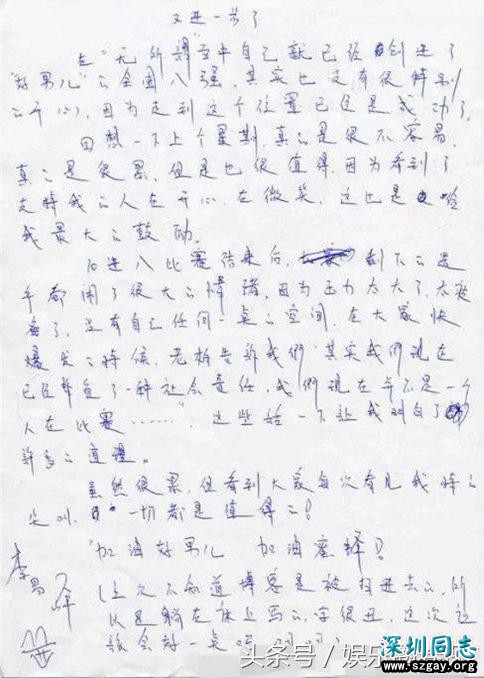 又进一步了
在“无所谓”当中自己就已经创进了
“好男儿”的全国八强，其实也没有很特别
的开心，因为走到这个位置已经是成功了。
回想一下上个星期，真的是很不容易，
真的是很累，但是也很值得，因为看到了
支持我的人在开心，在微笑，这也是给
我最大的鼓励。
10进八比赛结束后，剩下的选
手都闹了很大的情绪，因为压力太大了，太疲
惫了，没有自己任何一点的空间，在大家快
爆发的时候，老板告诉我们“其实我们现在
已经背负了一种社会责任，我们现在并不是一个
人在比赛……”这些话一下让我明白了
许多的道理。
虽然很累，但看到大家每次看见我时的
尖叫，一切都是值得的！
“加油好男儿 加油！
李易峰
（上次不知道博客是被扫进去的，所
以是躺在床上写的，字很丑，这次应
该会好一点
头条号 / 娱乐
深圳同志
www.szgay.org